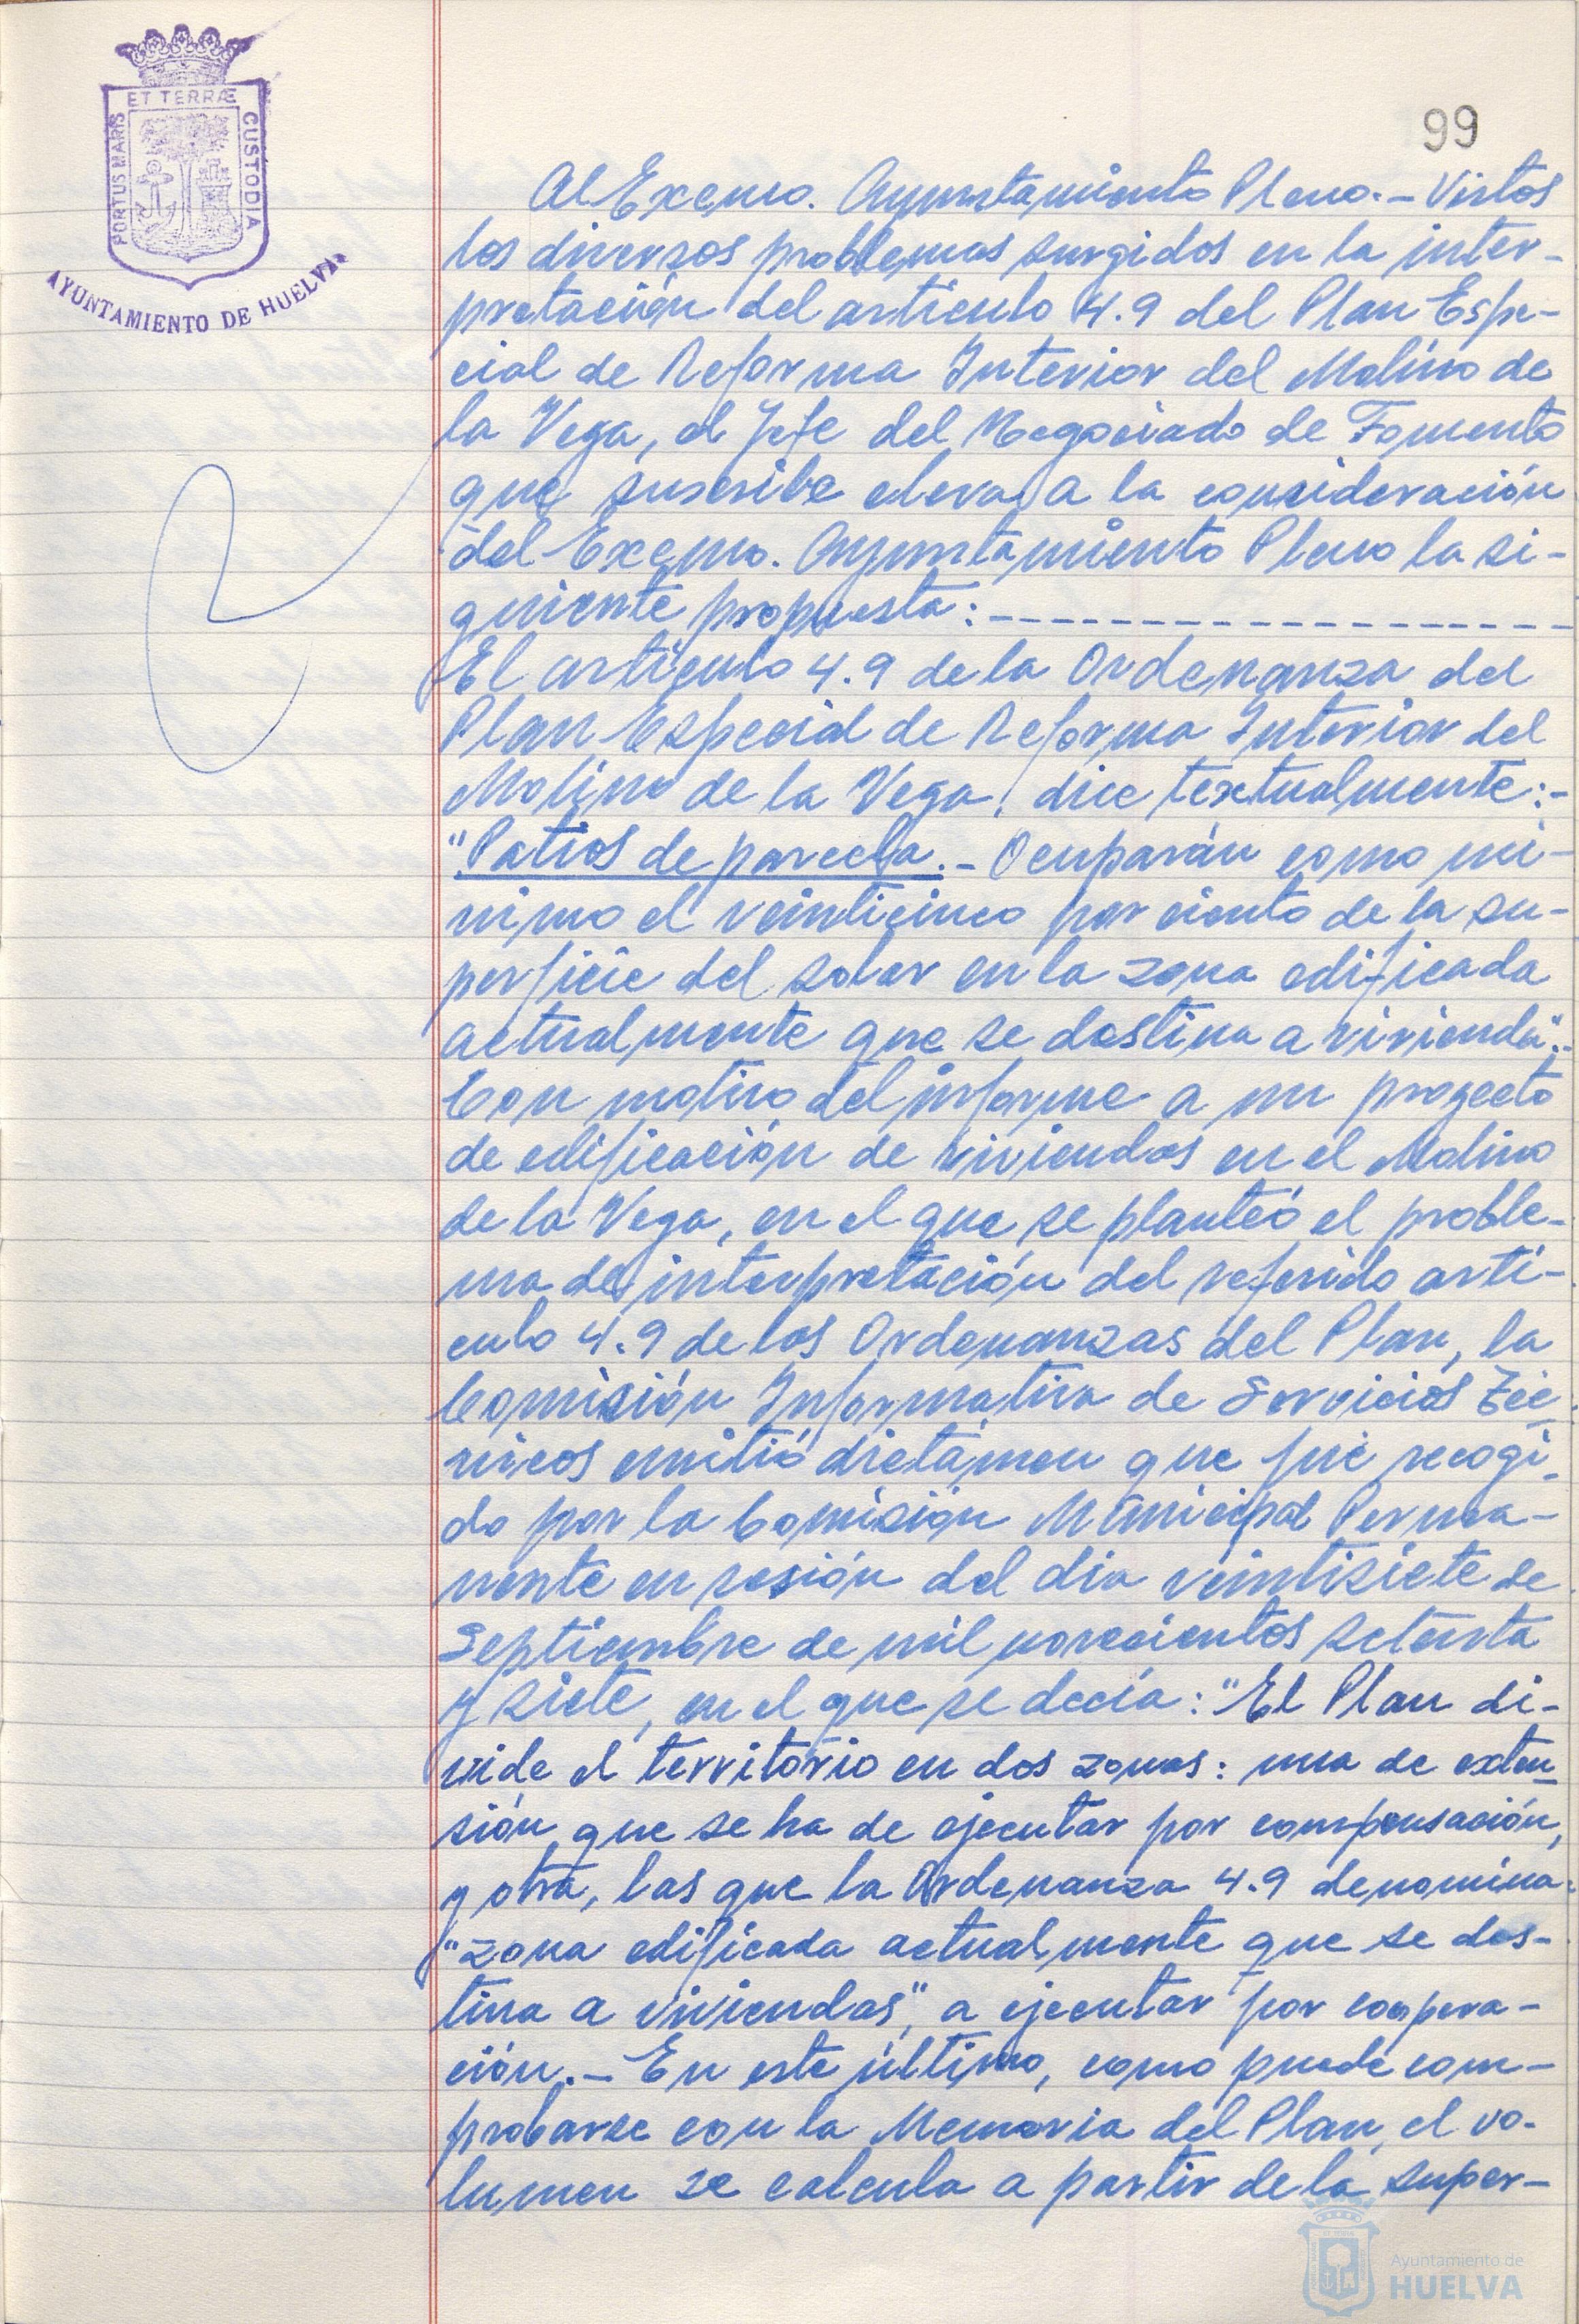 ET TERRÆ
PORTUS MARIS
CUSTODIA
AYUNTAMIENTO DE HUELVA
99
Al Excmo. Ayuntamiento Pleno.- Vistos
los diversos problemas surgidos en la inter-
pretación del artículo 4.9 del Plan Espe-
cial de Reforma Interior del Molino de
la Vega, el Jefe del Negociado de Fomento
que suscribe eleva a la consideración
del Excmo. Ayuntamiento Pleno la si-
guiente propuesta:------------------
El artículo 4.9 de la Ordenanza del
Plan Especial de Reforma Interior del
Molino de la Vega, dice textualmente:-
"Patios de parecla.- Ocuparán como mí-
nimo el veinticinco por ciento de la su-
perficie del solar en la zona edificada
actualmente que se destina a vivienda".-
Con motivo del informe a un proyecto
de edificación de viviendas en el Molino
de la Vega, en el que se planteó el proble-
ma de interpretación del referido artí-
culo 4.9 de las Ordenanzas del Plan, la
Comisión Informativa de Servicios Téc-
nicos emitió dictámen que fué recogi-
do por la Comisión Municipal Perma-
nente en sesión del día veintisiete de
Septiembre de mil novecientos setenta
y siete, en el que se decía: "El Plan di-
vide el territorio en dos zonas: una de exten
sión que se ha de ejecutar por compensación,
y otra, las que la Ordenanza 4.9 denomina:
"zona edificada actualmente que se des-
tina a viviendas", a ejecutar por coopera-
ción.- En este último, como puede com-
probarse con la Memoria del Plan, el vo-
lumen se calcula a partir de la super-
Ayuntamiento de
HUELVA